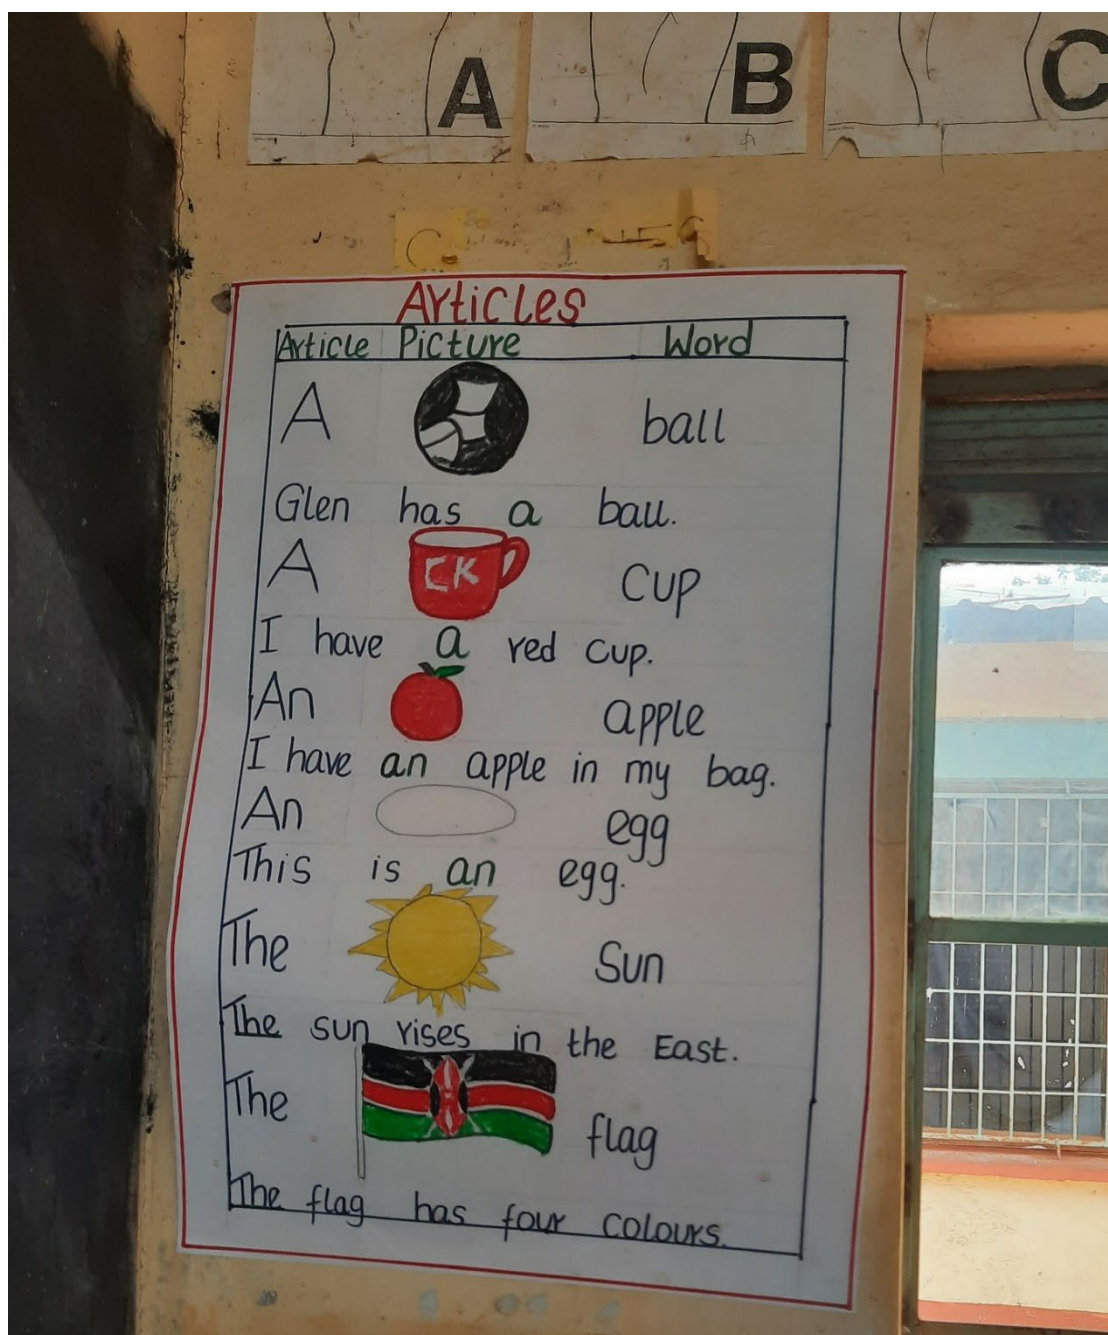 A B C
Articles
Article Picture Word
A ball
Glen has a ball.
A CK cup
I have a red cup.
An apple
I have an apple in my bag.
An egg
This is an egg.
The Sun
The sun rises in the East.
The flag
The flag has four colours.